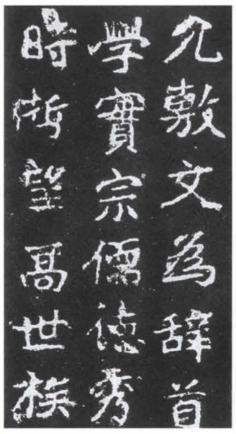 允敷文為辭首
學實宗儒德秀
時哲望高世族